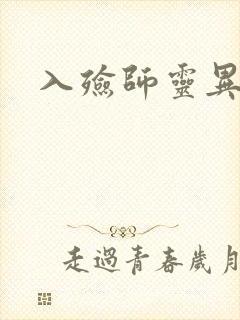 入殮師靈異
走過青春歲月